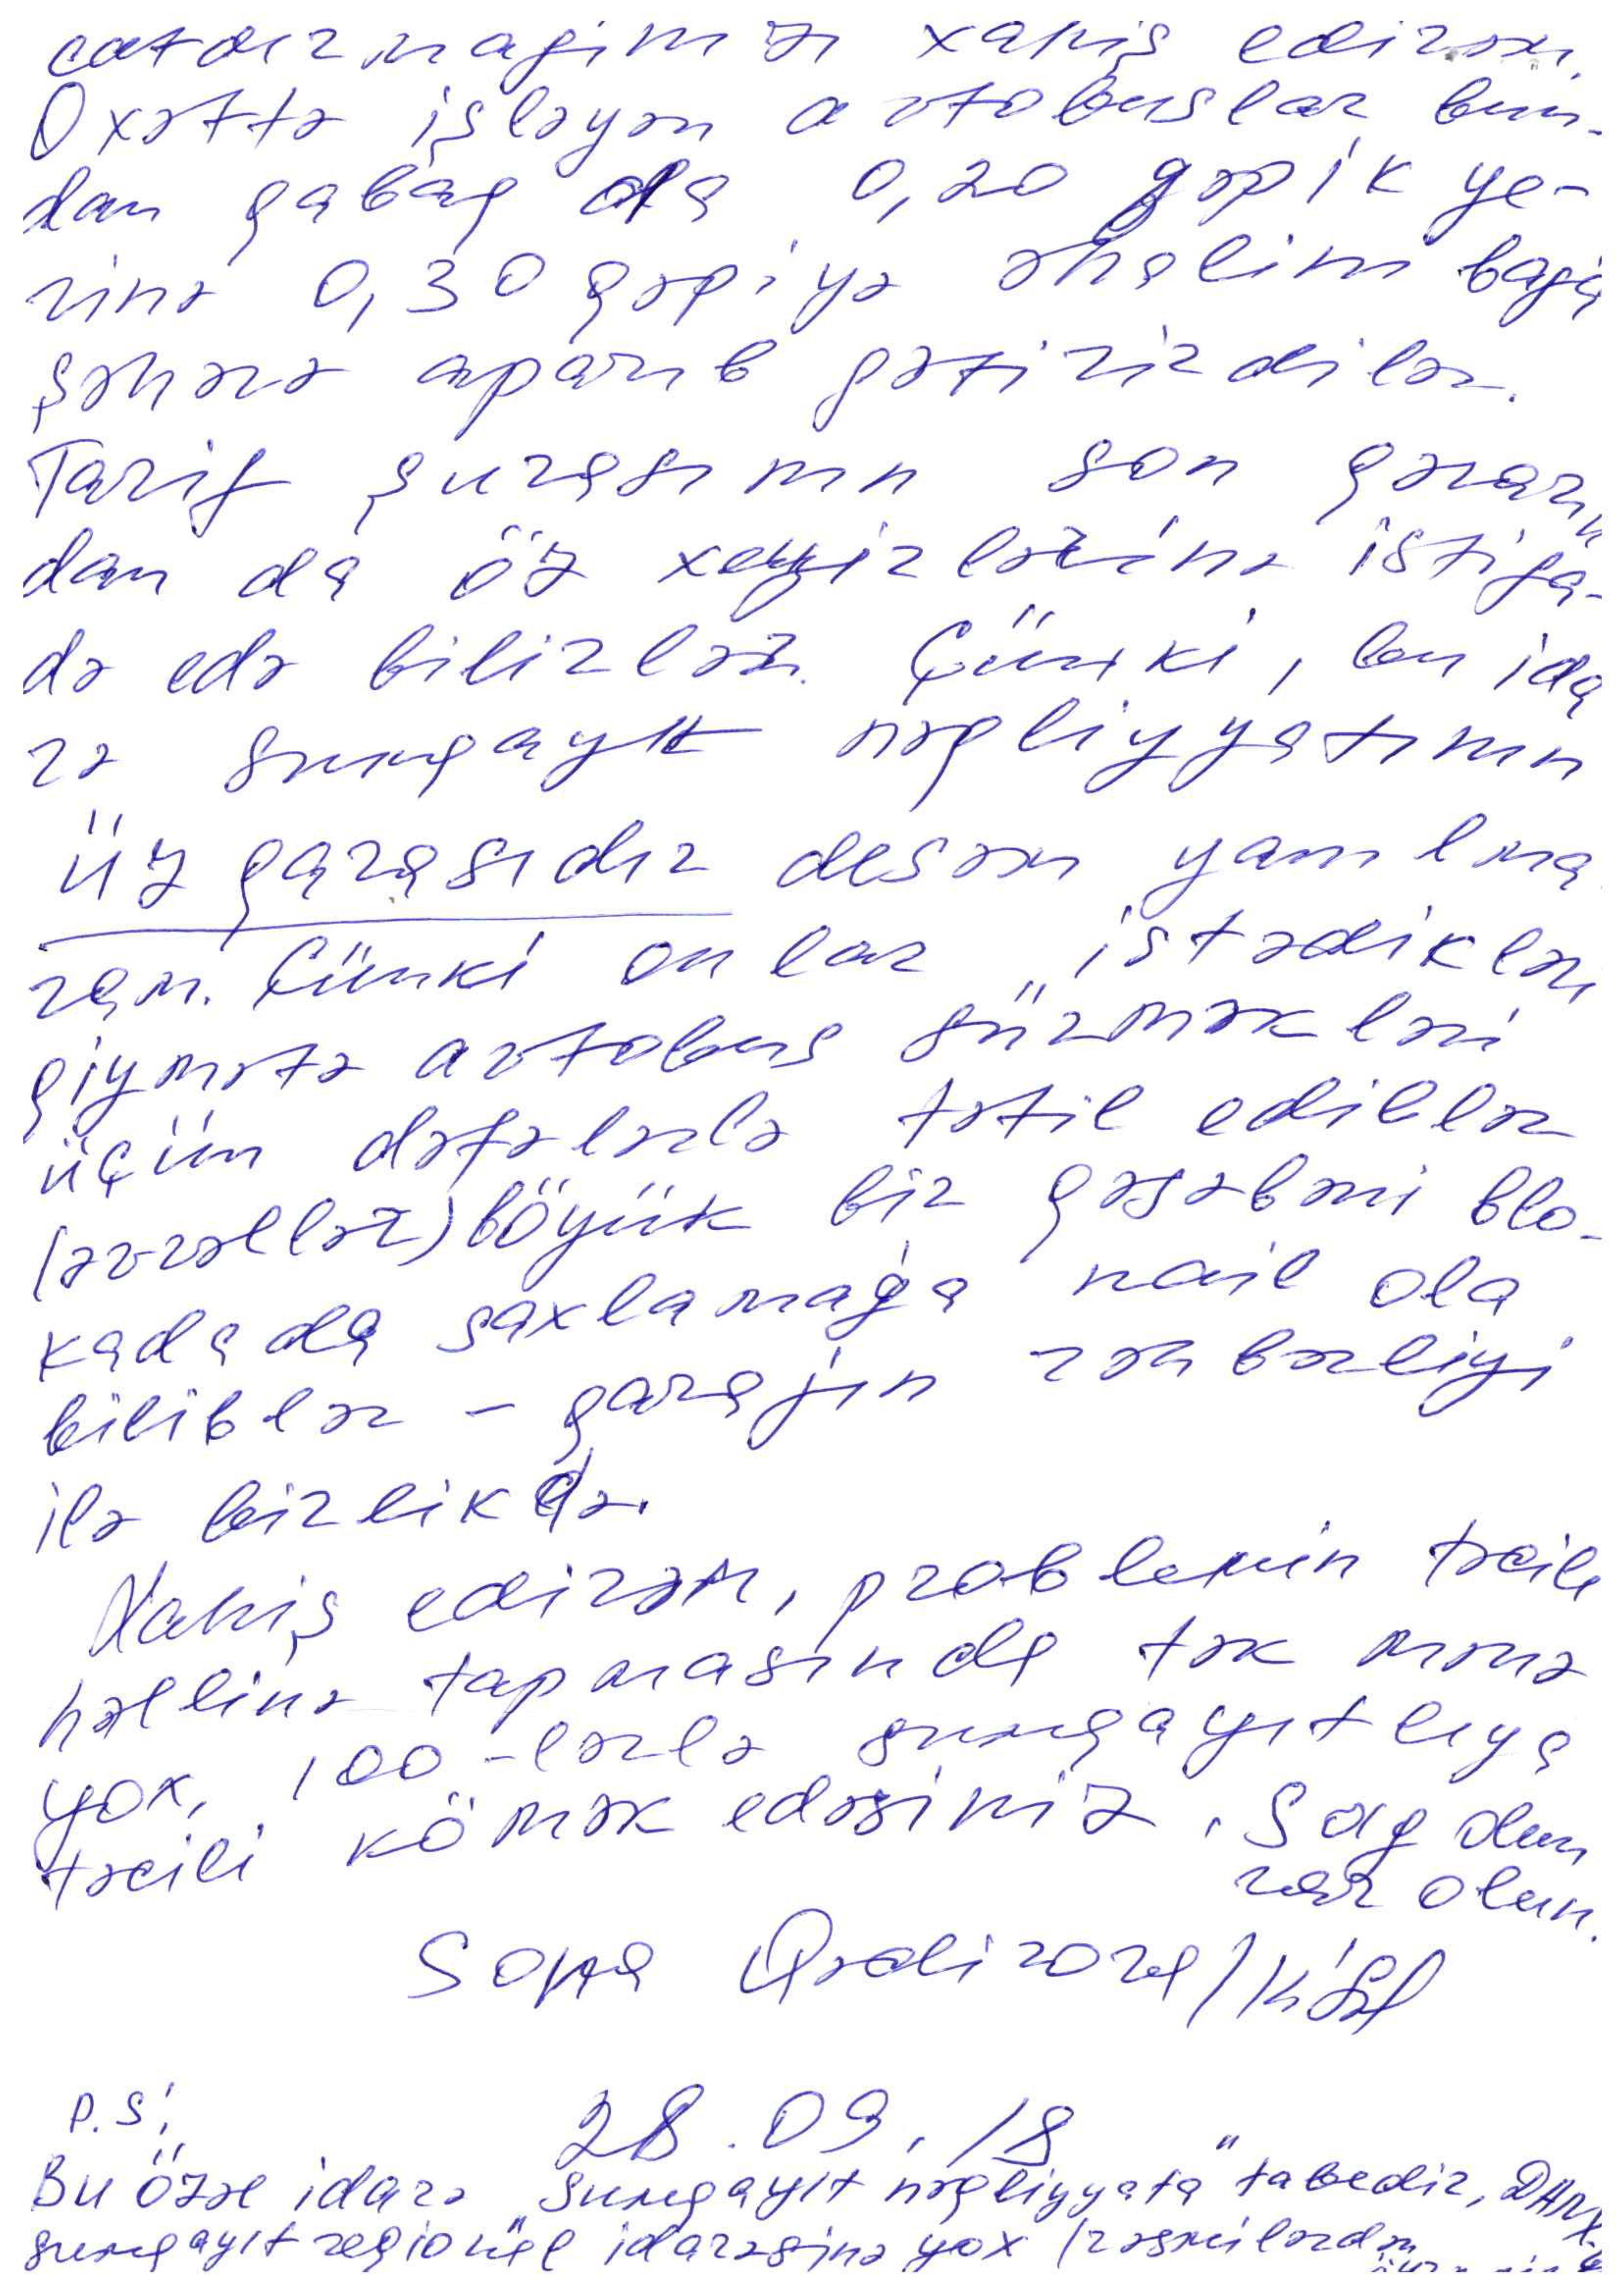 catdırmağınızı xahiş edirəm.
O xətt­ə işləyən avtobuslar bun-
dan qabaq da 0,20 qəpik ye-
rinə 0,30 qəpiyə əhalini bağa
şəhərə aparıb gətirirdilər.
Tarif şurasının son qərarın
dan da öz xeyirlərinə istifa-
də edə bilirlər. Çünki, bu ida
rə Sumqayıt nəqliyyatının
üz qarasıdır desəm yanılma
ram. Çünki onlar "istədikləri
qiymətə avtobus sürməkləri
üçün dəfələrlə tətil ediblər
(əvvəllər) böyük bir qəsəbəni blo-
kadada saxlamağa nail ola
biliblər - qarajın rəhbərliyi
ilə birlikdə.
Xahiş edirəm, problemin təcili
həllini tapmasında tək mənə
yox, 100-lərlə sumqayıtlıya
təcili kömək edəsiniz. Sağ olun
var olun.
Sona Qədirova/
P.S.
28.09.18
Bu özəl idarə "Sumqayıt nəqliyyata" tabedir, DANX-
Sumqayıt regional idarəsinə yox (rəsmilərdən